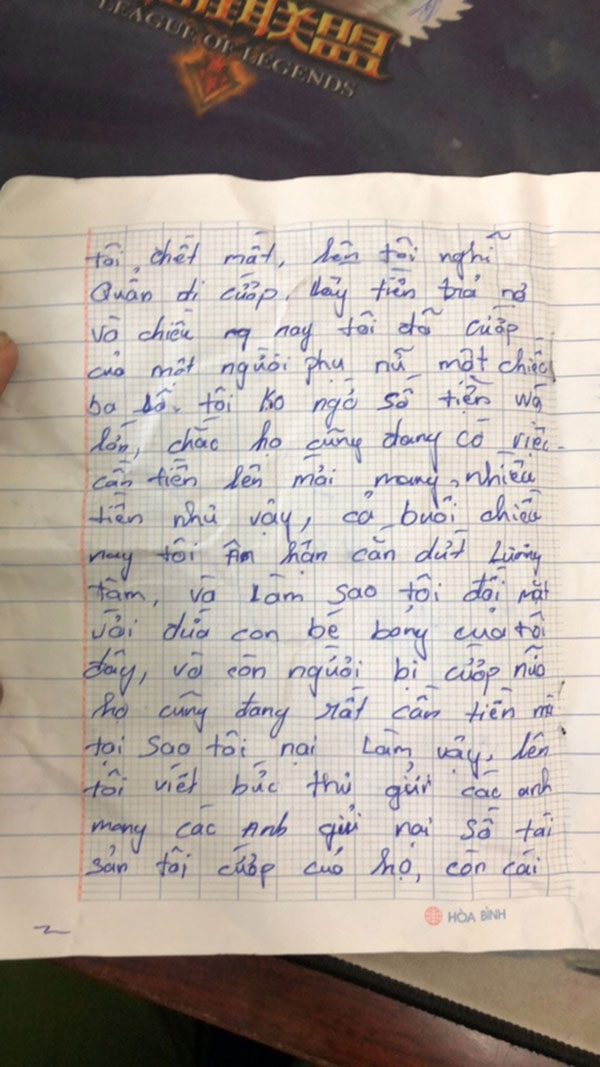 联盟
LEAGUE OF LEGENDS
tôi, chết mất, lên tôi nghĩ
Quẩn đi cướp. lấy tiền trả nợ
và chiều ng nay tôi đã cướp
của một người phụ nữ một chiếc
ba lô. tôi ko ngờ số tiền wá
lớn, chắc họ cũng đang có việc
cần tiền lên mới mang, nhiều
tiền như vậy, cả buổi chiều
nay tôi ân hận cắn dứt Lương
tâm, và Làm sao tôi đối mặt
với đứa con bé bỏng của tôi
đây, và còn người bị cướp nữa
họ cũng đang rất cần tiền mà
tại sao tôi nại Làm vậy, lên
tôi viết bức thư gửi các anh
mong các Anh gửi nại số tài
sản tôi cướp của họ, còn cái
HÒA BÌNH
2